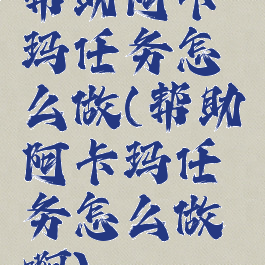 帮助阿卡
玛任务怎
么做(帮助
阿卡玛任
务怎么做
啊)